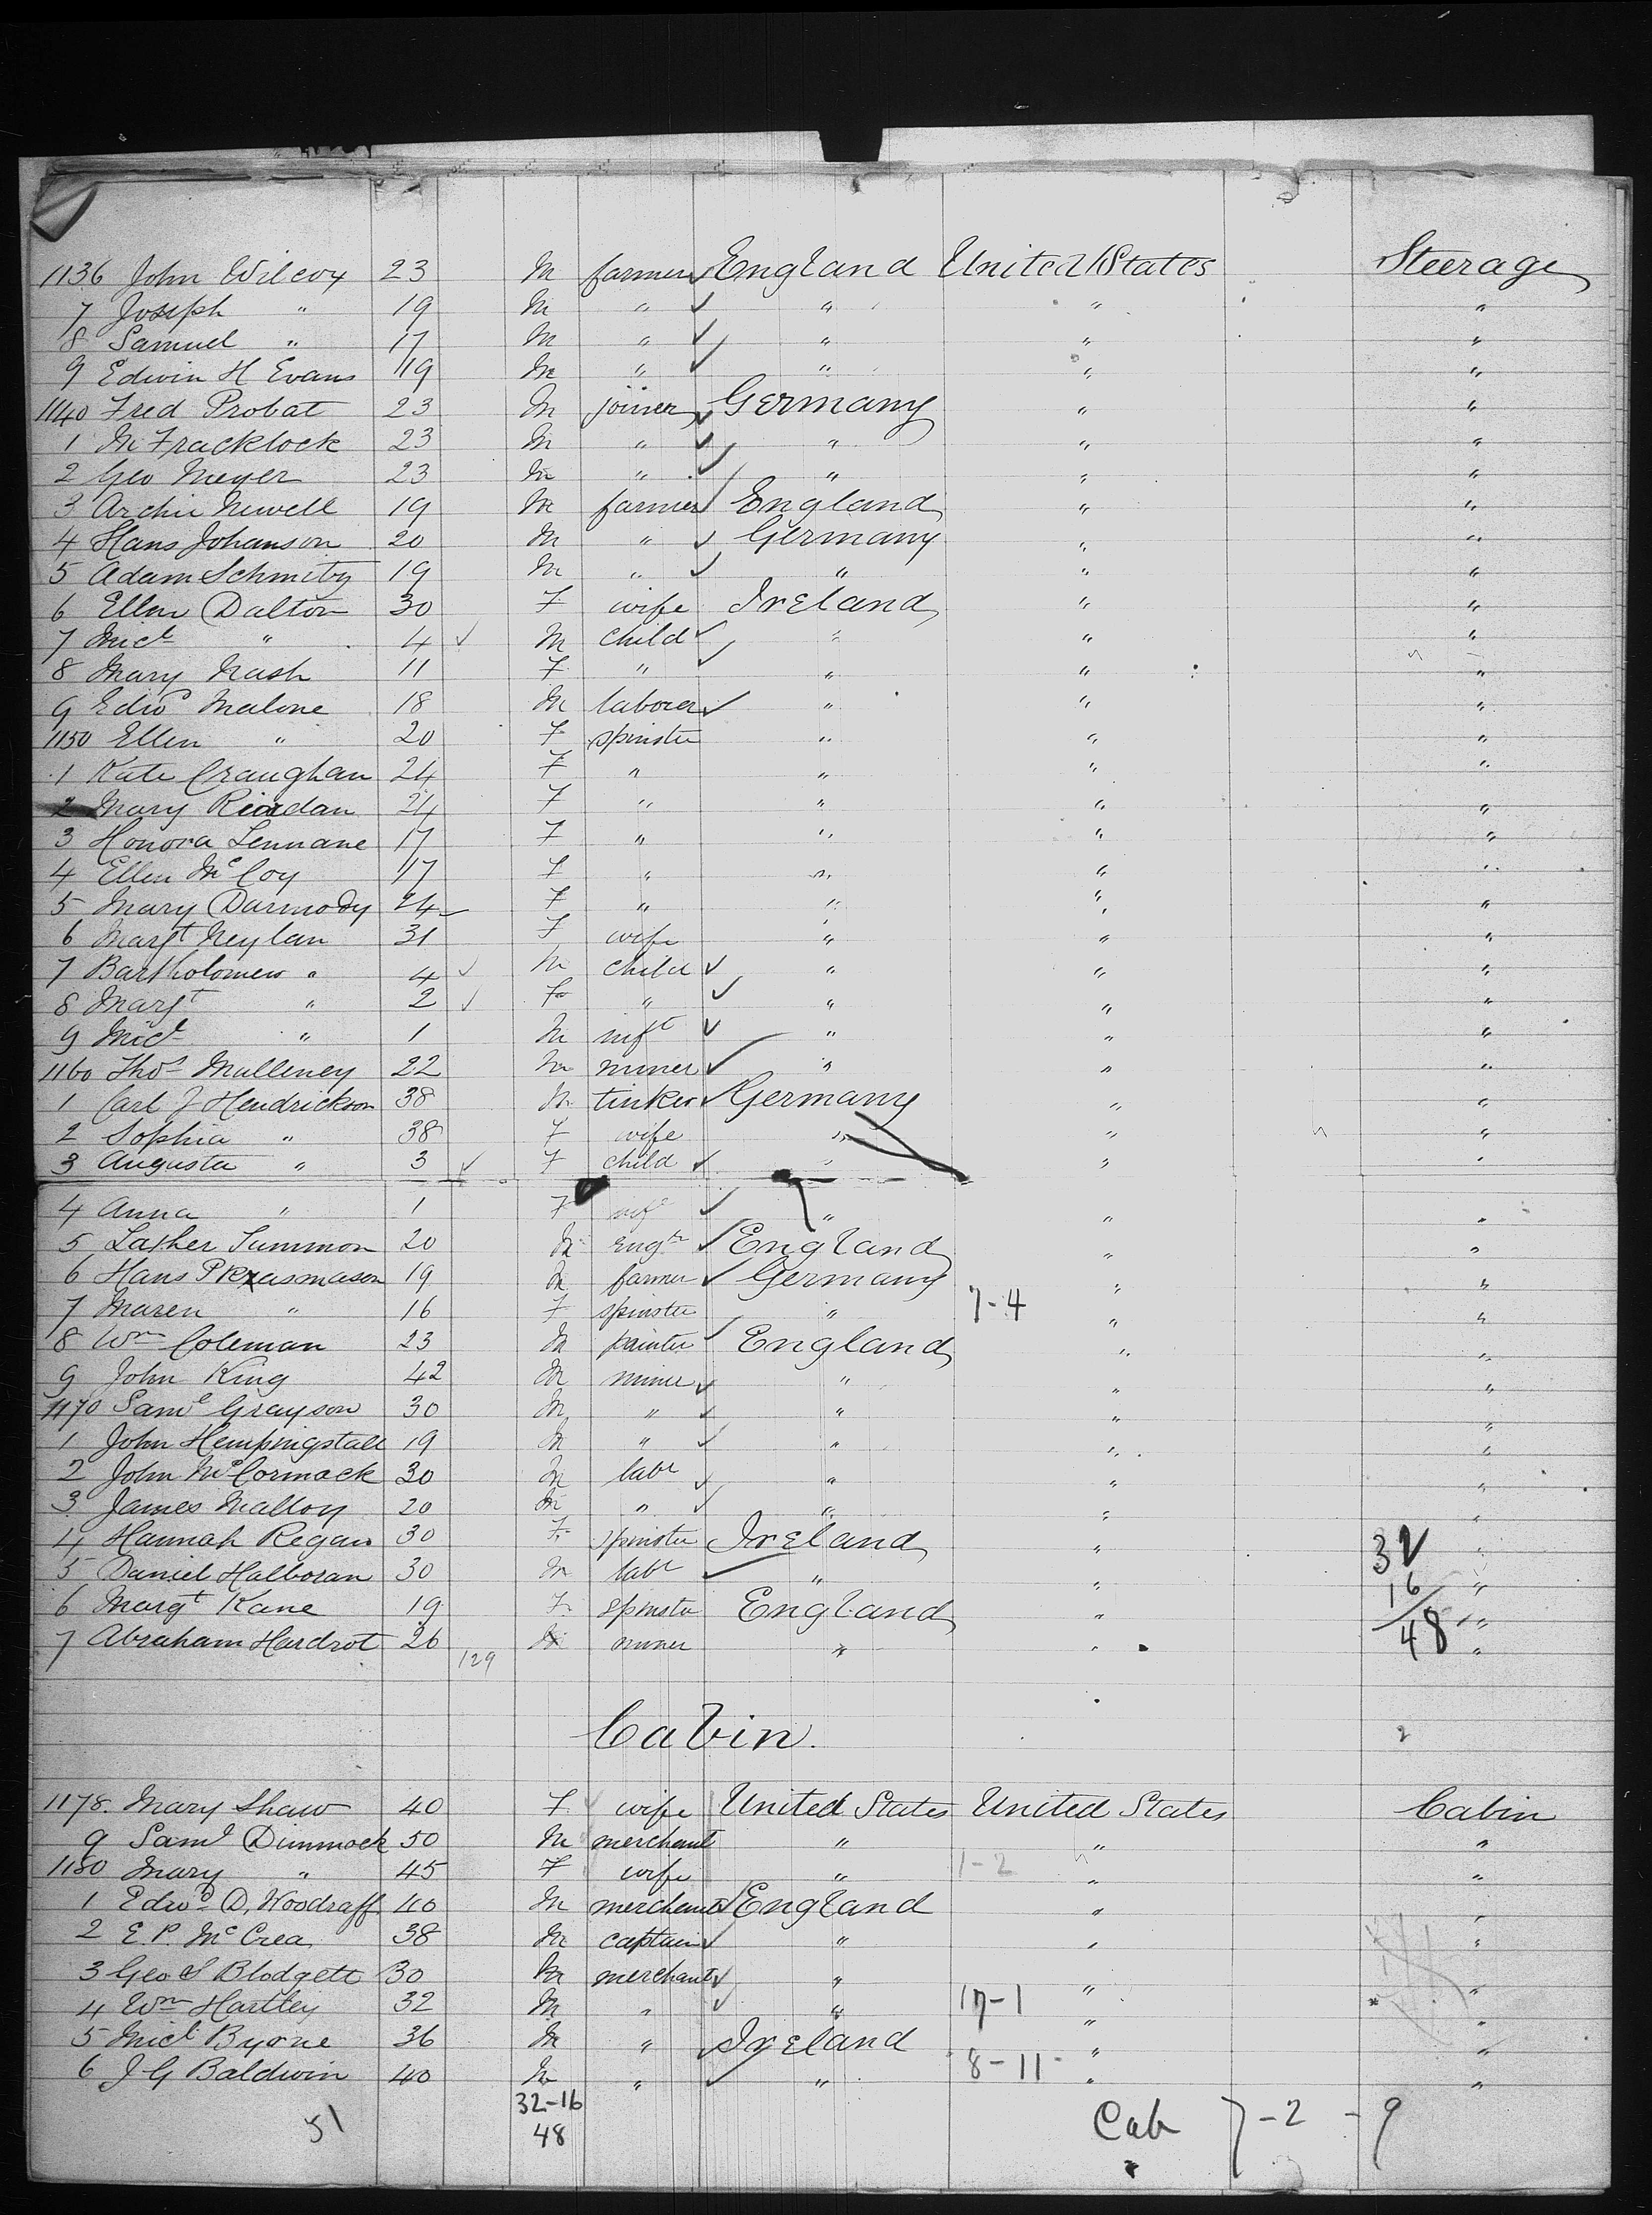 1136 John Wilcox 23 M farmer England United States Steerage
7 Joseph " 19 M " " " "
8 Samuel " 17 M " " " "
9 Edwin H Evans 19 M " " " "
1140 Fred Probat 23 M joiner Germany " "
1 M Fracklock 23 M " " " "
2 Geo Meyer 23 M " " " "
3 Archie Newell 19 M farmer England " "
4 Hans Johanson 20 M " Germany " "
5 Adam Schmitz 19 M " " " "
6 Ellen Dalton 30 F wife Ireland " "
7 Micl " 4 ✓ M child " " "
8 Mary Nash 11 F " " " "
9 Edwd Malone 18 M laborer " " "
1150 Ellen " 20 F spinster " " "
1 Kate Craughan 24 F " " " "
2 Mary Riordan 24 F " " " "
3 Honora Lennane 17 F " " " "
4 Ellen McCoy 17 F " " " "
5 Mary Darmody 24 F " " " "
6 Margt Neylan 31 F wife " " "
7 Bartholomew " 4 ✓ M child " " "
8 Margt " 2 ✓ F " " " "
9 Micl " 1 M inft " " "
1160 Thos Mulleney 22 M miner " " "
1 Carl J Hendrickson 38 M tinker Germany " "
2 Sophia " 38 F wife " " "
3 Augusta " 3 ✓ F child " " "
4 Anna " 1 F inft " " "
5 Summon 20 M engr England " "
6 Hans P Rasmason 19 M farmer Germany " "
7 Maren " 16 F spinster " 7-4 " "
8 Wm Coleman 23 M painter England " "
9 John King 42 M miner " " "
1170 Saml Grayson 30 M " " " "
1 John Hempingstall 19 M " " " "
2 John McCormack 30 M labr " " "
3 James Malloy 20 M " " " "
4 Hannah Regan 30 F spinster Ireland " 32 "
5 Daniel Halboran 30 M labr " " 16 "
6 Margt Kane 19 F spinster England " "
7 Abraham Hardrot 26 129 M miner " " 48 "
Cabin.
2
1178. Mary Shaw 40 F wife United States United States Cabin
9 Saml Dimmock 50 M merchant " " "
1180 Mary " 45 F wife " 1-2 " "
1 Edwd D. Woodraff 40 M merchant England " "
2 E. P. McCrea 38 M captain " " "
3 Geo S Blodgett 30 M merchant " " "
4 Wm Hartley 32 M " " 17-1 " "
5 Micl Byrne 36 M " Ireland " "
6 J G Baldwin 40 M " " 8-11 " "
32-16
51 48 Cab 7-2-9